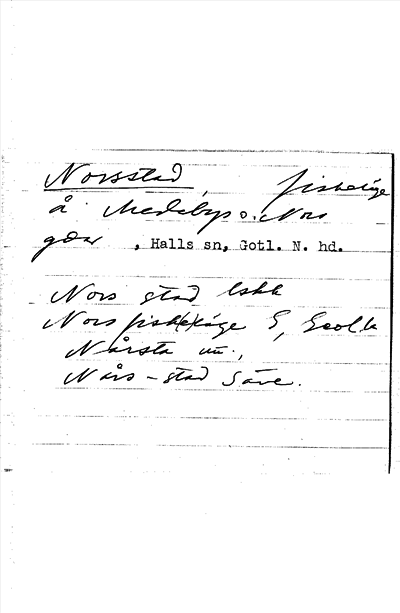 Norsstad, fiskeläge
å Medebys o. Nors
gdar, Halls sn, Gotl. N. hd.
Nors stad lskk
Nors fiskeläge G, Geol. k
Nårsta uu.,
Nårs-stad Säve.